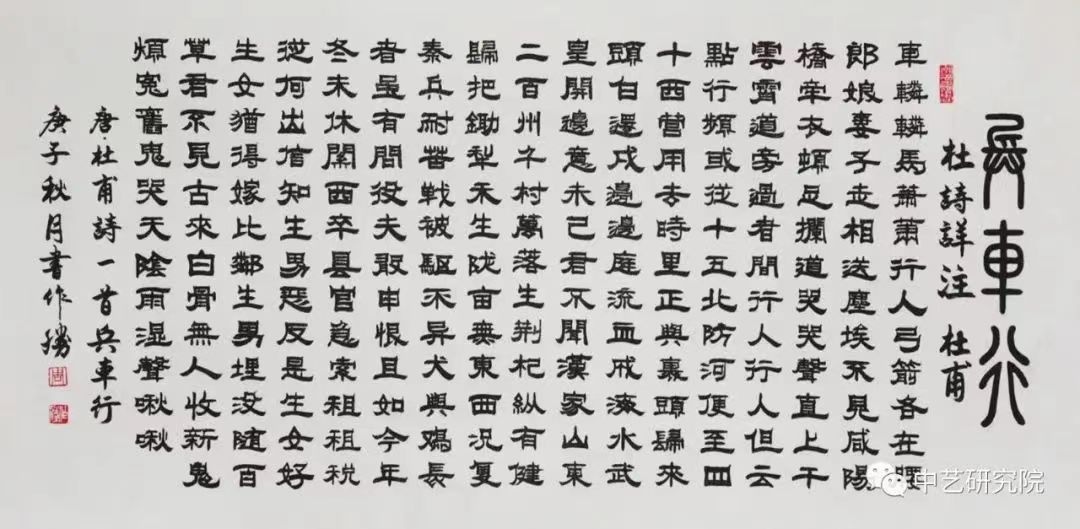 兵車行
杜詩詳注 杜甫
車轔轔馬蕭蕭行人弓箭各在腰
郎娘妻子走相送塵埃不見咸陽
橋牽衣頓足攔道哭哭聲直上干
雲霄道旁過者問行人行人但云
點行頻或從十五北防河便至四
十西營田去時里正與裹頭歸來
頭白還戍邊邊庭流血成海水武
皇開邊意未已君不聞漢家山東
二百州千村萬落生荆杞縱有健
歸把鋤犁禾生陇亩無東西況復
秦兵耐苦戰被驅不異犬與鷄長
者虽有問役夫敢申恨且如今年
冬未休關西卒县官急索租租稅
從何出信知生男惡反是生女好
生女猶得嫁比鄰生男埋沒隨百
草君不見古來白骨無人收新鬼
煩冤舊鬼哭天陰雨湿聲啾啾
唐·杜甫詩一首兵車行
庚子秋月書作勝
周
中艺研究院